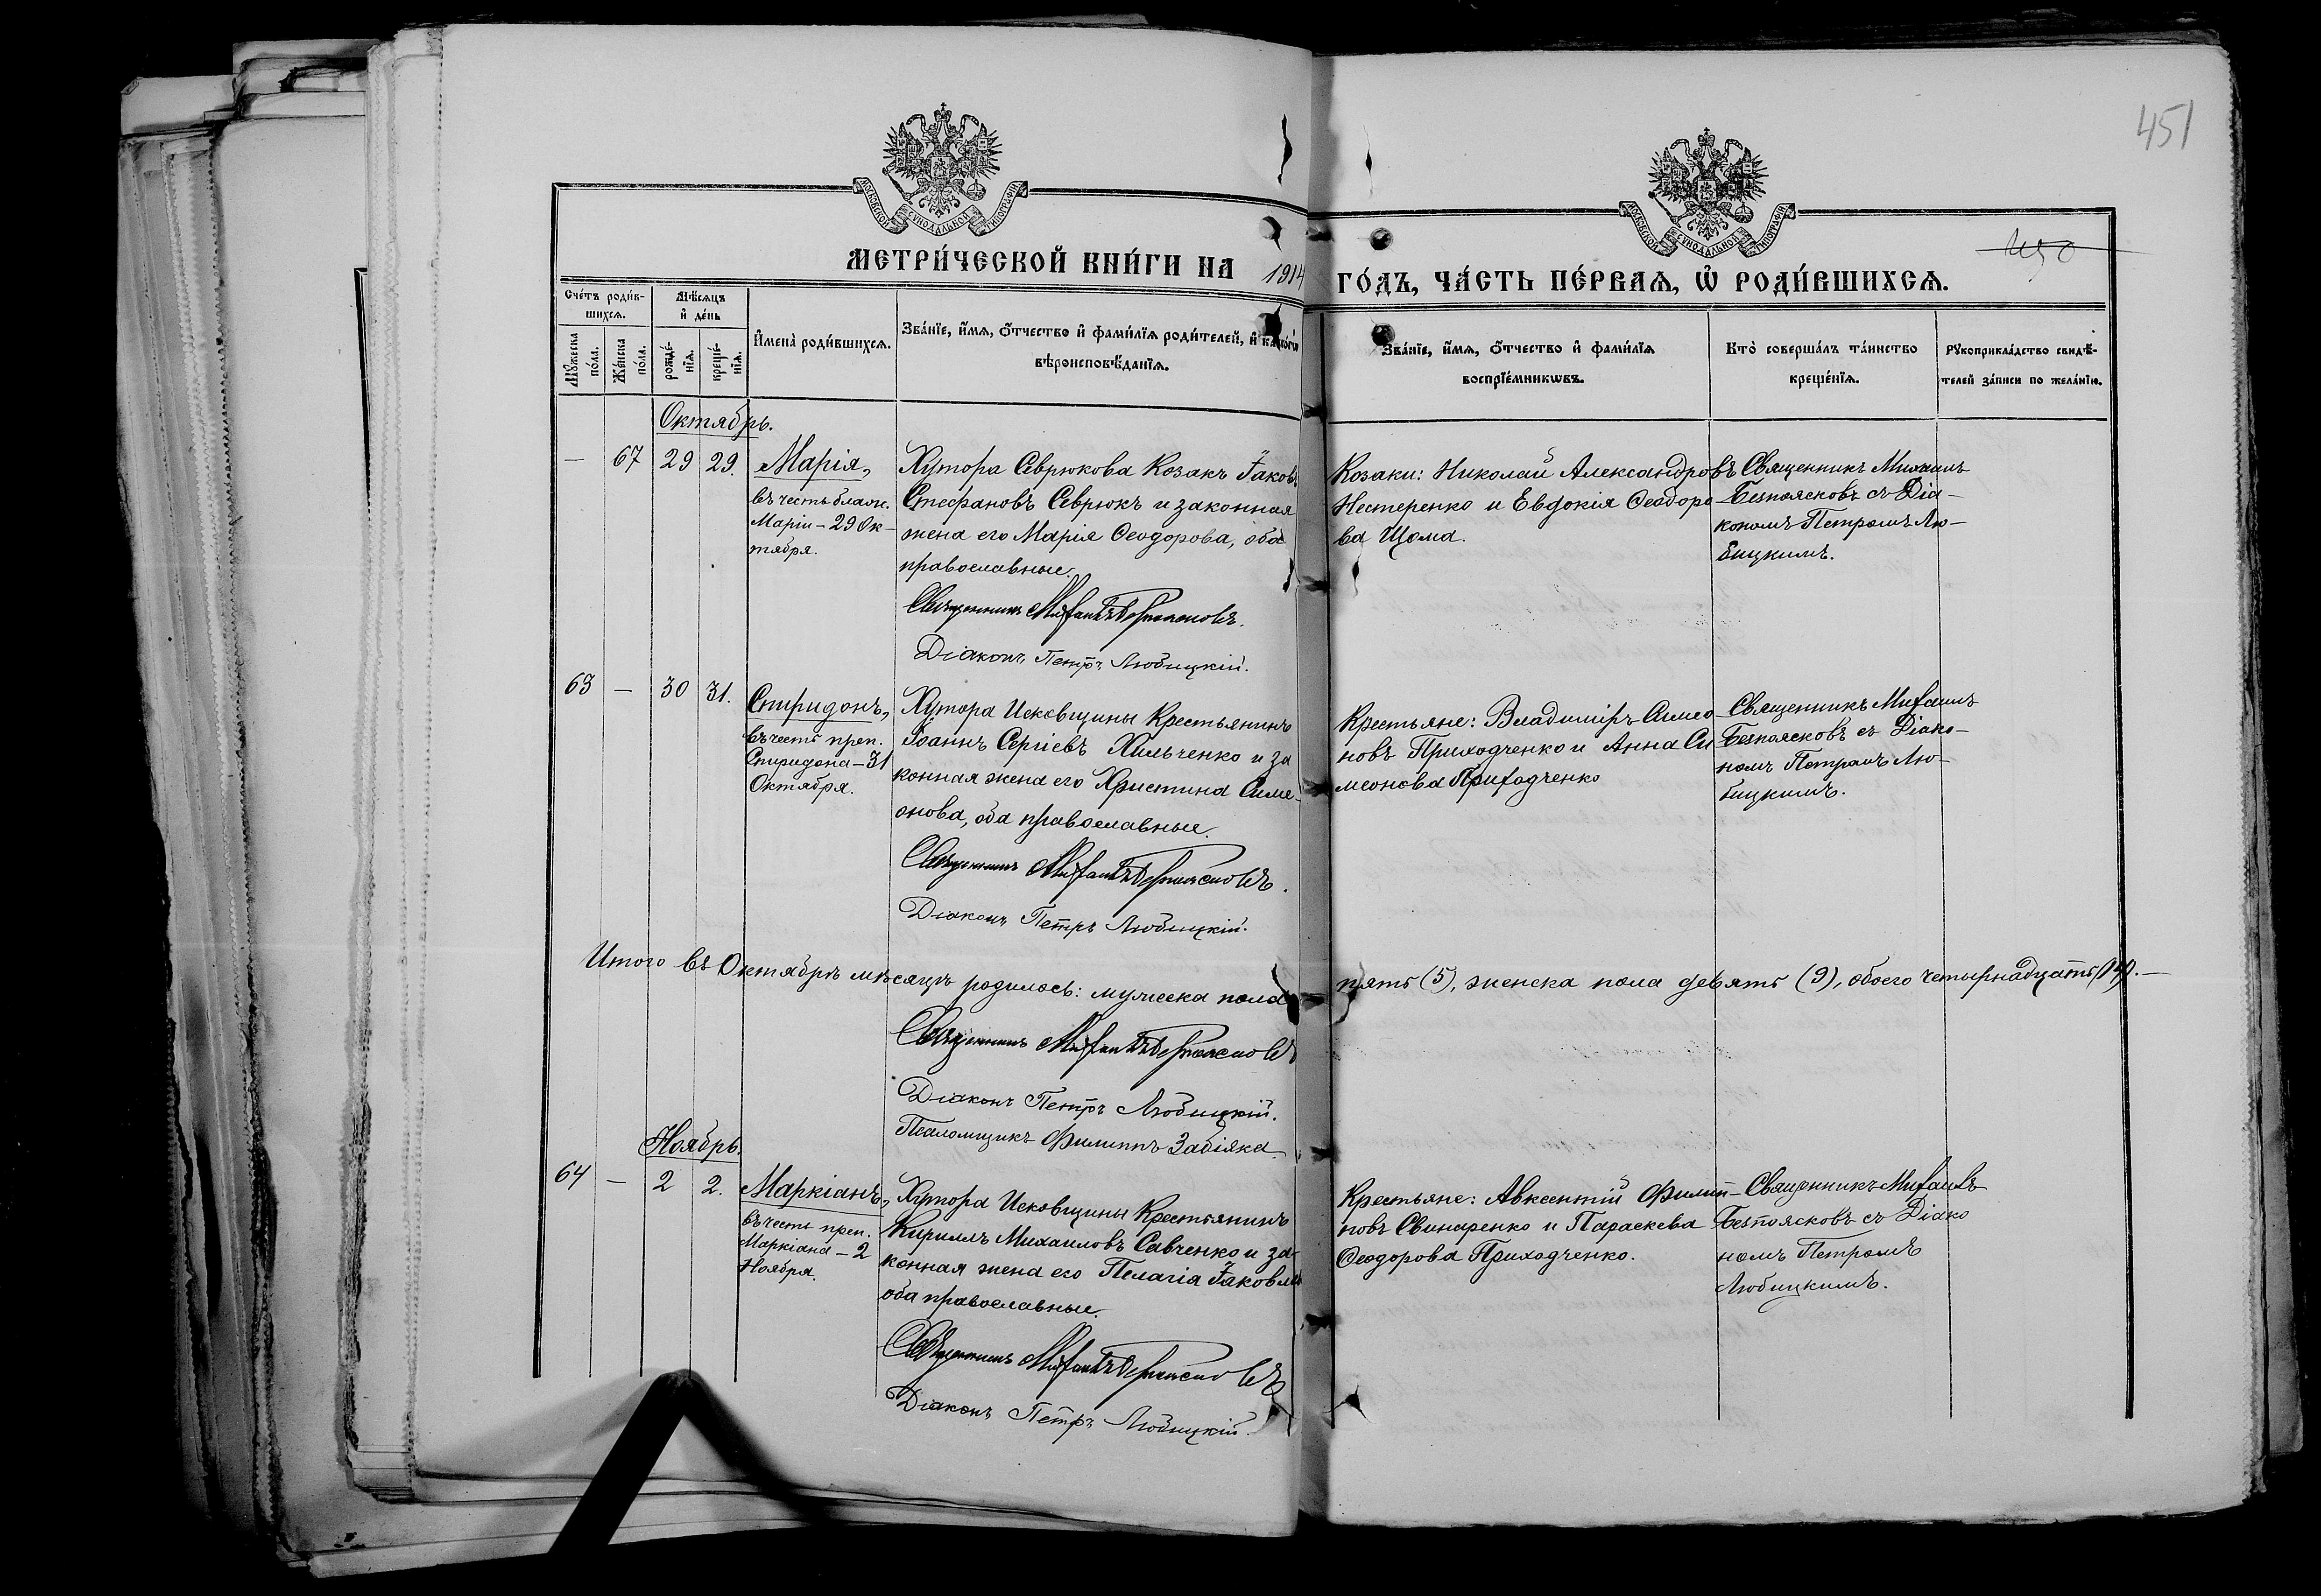 451
МОСКОВСКОЙ СѴНОДАЛЬНОЙ ТИПОГРАФІИ
МОСКОВСКОЙ СѴНОДАЛЬНОЙ ТИПОГРАФІИ
450
МЕТРИ́ЧЕСКОЙ КНИ́ГИ НА 1914 ГО́ДЪ, ЧА́СТЬ ПЕ́РВАѦ, Ѽ РОДИ́ВШИХСѦ.
Сче́тъ роди́в-
шихсѧ.
Мѣ́сѧцъ
и҆ де́нь
Мꙋ́жеска
по́ла.
Же́нска
по́ла.
рожде́-
нїѧ.
креще́-
нїѧ.
И҆мена̀ роди́вшихсѧ.
Зва́нїе, и҆́мѧ, ѻ҆́тчество и҆ фами́лїѧ роди́телей, и҆ како́гѡ
вѣроисповѣ́данїѧ.
Зва́нїе, и҆́мѧ, ѻ҆́тчество и҆ фами́лїѧ
воспрїе́мникѡвъ.
Кто̀ соверша́лъ та́инство
креще́нїѧ.
Рꙋкоприкла́дство свидѣ́-
телей за́писи по жела́нїю.
Октябрь.
— 67 29 29.
Марія,
въ честь блаж.
Маріи – 29 Ок-
тября.
Хутора Севрюкова Козакъ Іаковъ
Стефановъ Севрюкъ и законная
жена его Марія Ѳеодорова, оба
православные.
Священникъ Михаилъ Безпоясковъ.
Діаконъ Петръ Любицкій.
Козаки: Николай Александровъ
Нестеренко и Евдокія Ѳеодоро
ва Цома.
Священникъ Михаилъ
Безпоясковъ съ Діа-
кономъ Петромъ Лю-
бицкимъ.
63 — 30 31.
Спиридонъ,
въ честь преп.
Спиридона – 31
Октября.
Хутора Исковщины Крестьянинъ
Іоаннъ Сергіевъ Хильченко и за
конная жена его Христина Симе-
онова, оба православные.
Священникъ Михаилъ Безпоясковъ.
Діаконъ Петръ Любицкій.
Крестьяне: Владиміръ Симео
новъ Приходченко и Анна Си
меонова Приходченко
Священникъ Михаилъ
Безпоясковъ съ Діако-
номъ Петромъ Лю-
бицкимъ.
Итого въ Октябрѣ мѣсяцѣ родилось: мужеска пола пять (5), женска пола девять (9), обоего четырнадцать (14). —
Священникъ Михаилъ Безпоясковъ
Діаконъ Петръ Любицкій.
Псаломщикъ Филиппъ Забіяка
Ноябрь.
64 — 2 2.
Маркіанъ,
въ честь преп.
Маркіана – 2
Ноября.
Хутора Исковщины Крестьянинъ
Кириллъ Михаиловъ Савченко и за-
конная жена его Пелагія Іаковлева
оба православные.
Священникъ Михаилъ Безпоясковъ
Діаконъ Петръ Любицкій.
Крестьяне: Авксентій Филип-
повъ Свинаренко и Параскева
Ѳеодорова Приходченко.
Священникъ Михаилъ
Безпоясковъ съ Діако
номъ Петромъ
Любицкимъ.